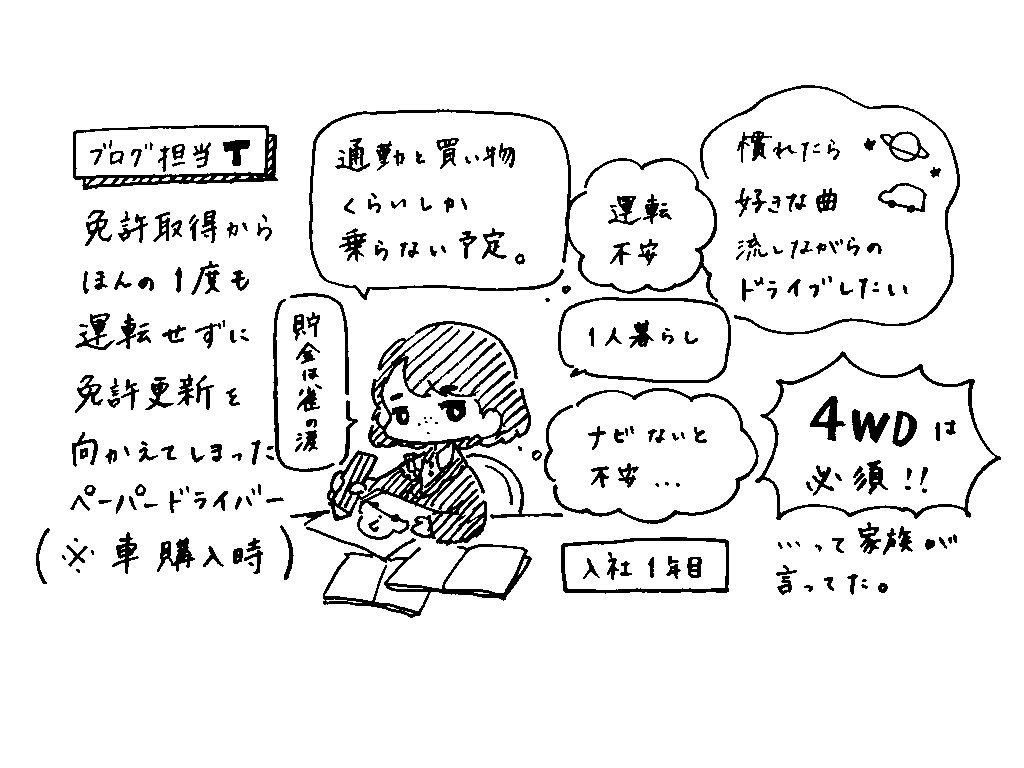 ブログ担当T
免許取得から
ほんの1度も
運転せずに
免許更新を
向かえてしまった
ペーパードライバー
(※車購入時)
通勤と買い物
くらいしか
乗らない予定。
貯金は雀の涙
運転
不安
1人暮らし
ナビないと
不安...
入社1年目
慣れたら
好きな曲
流しながらの
ドライブしたい
4WDは
必須!!
...って家族が
言ってた。